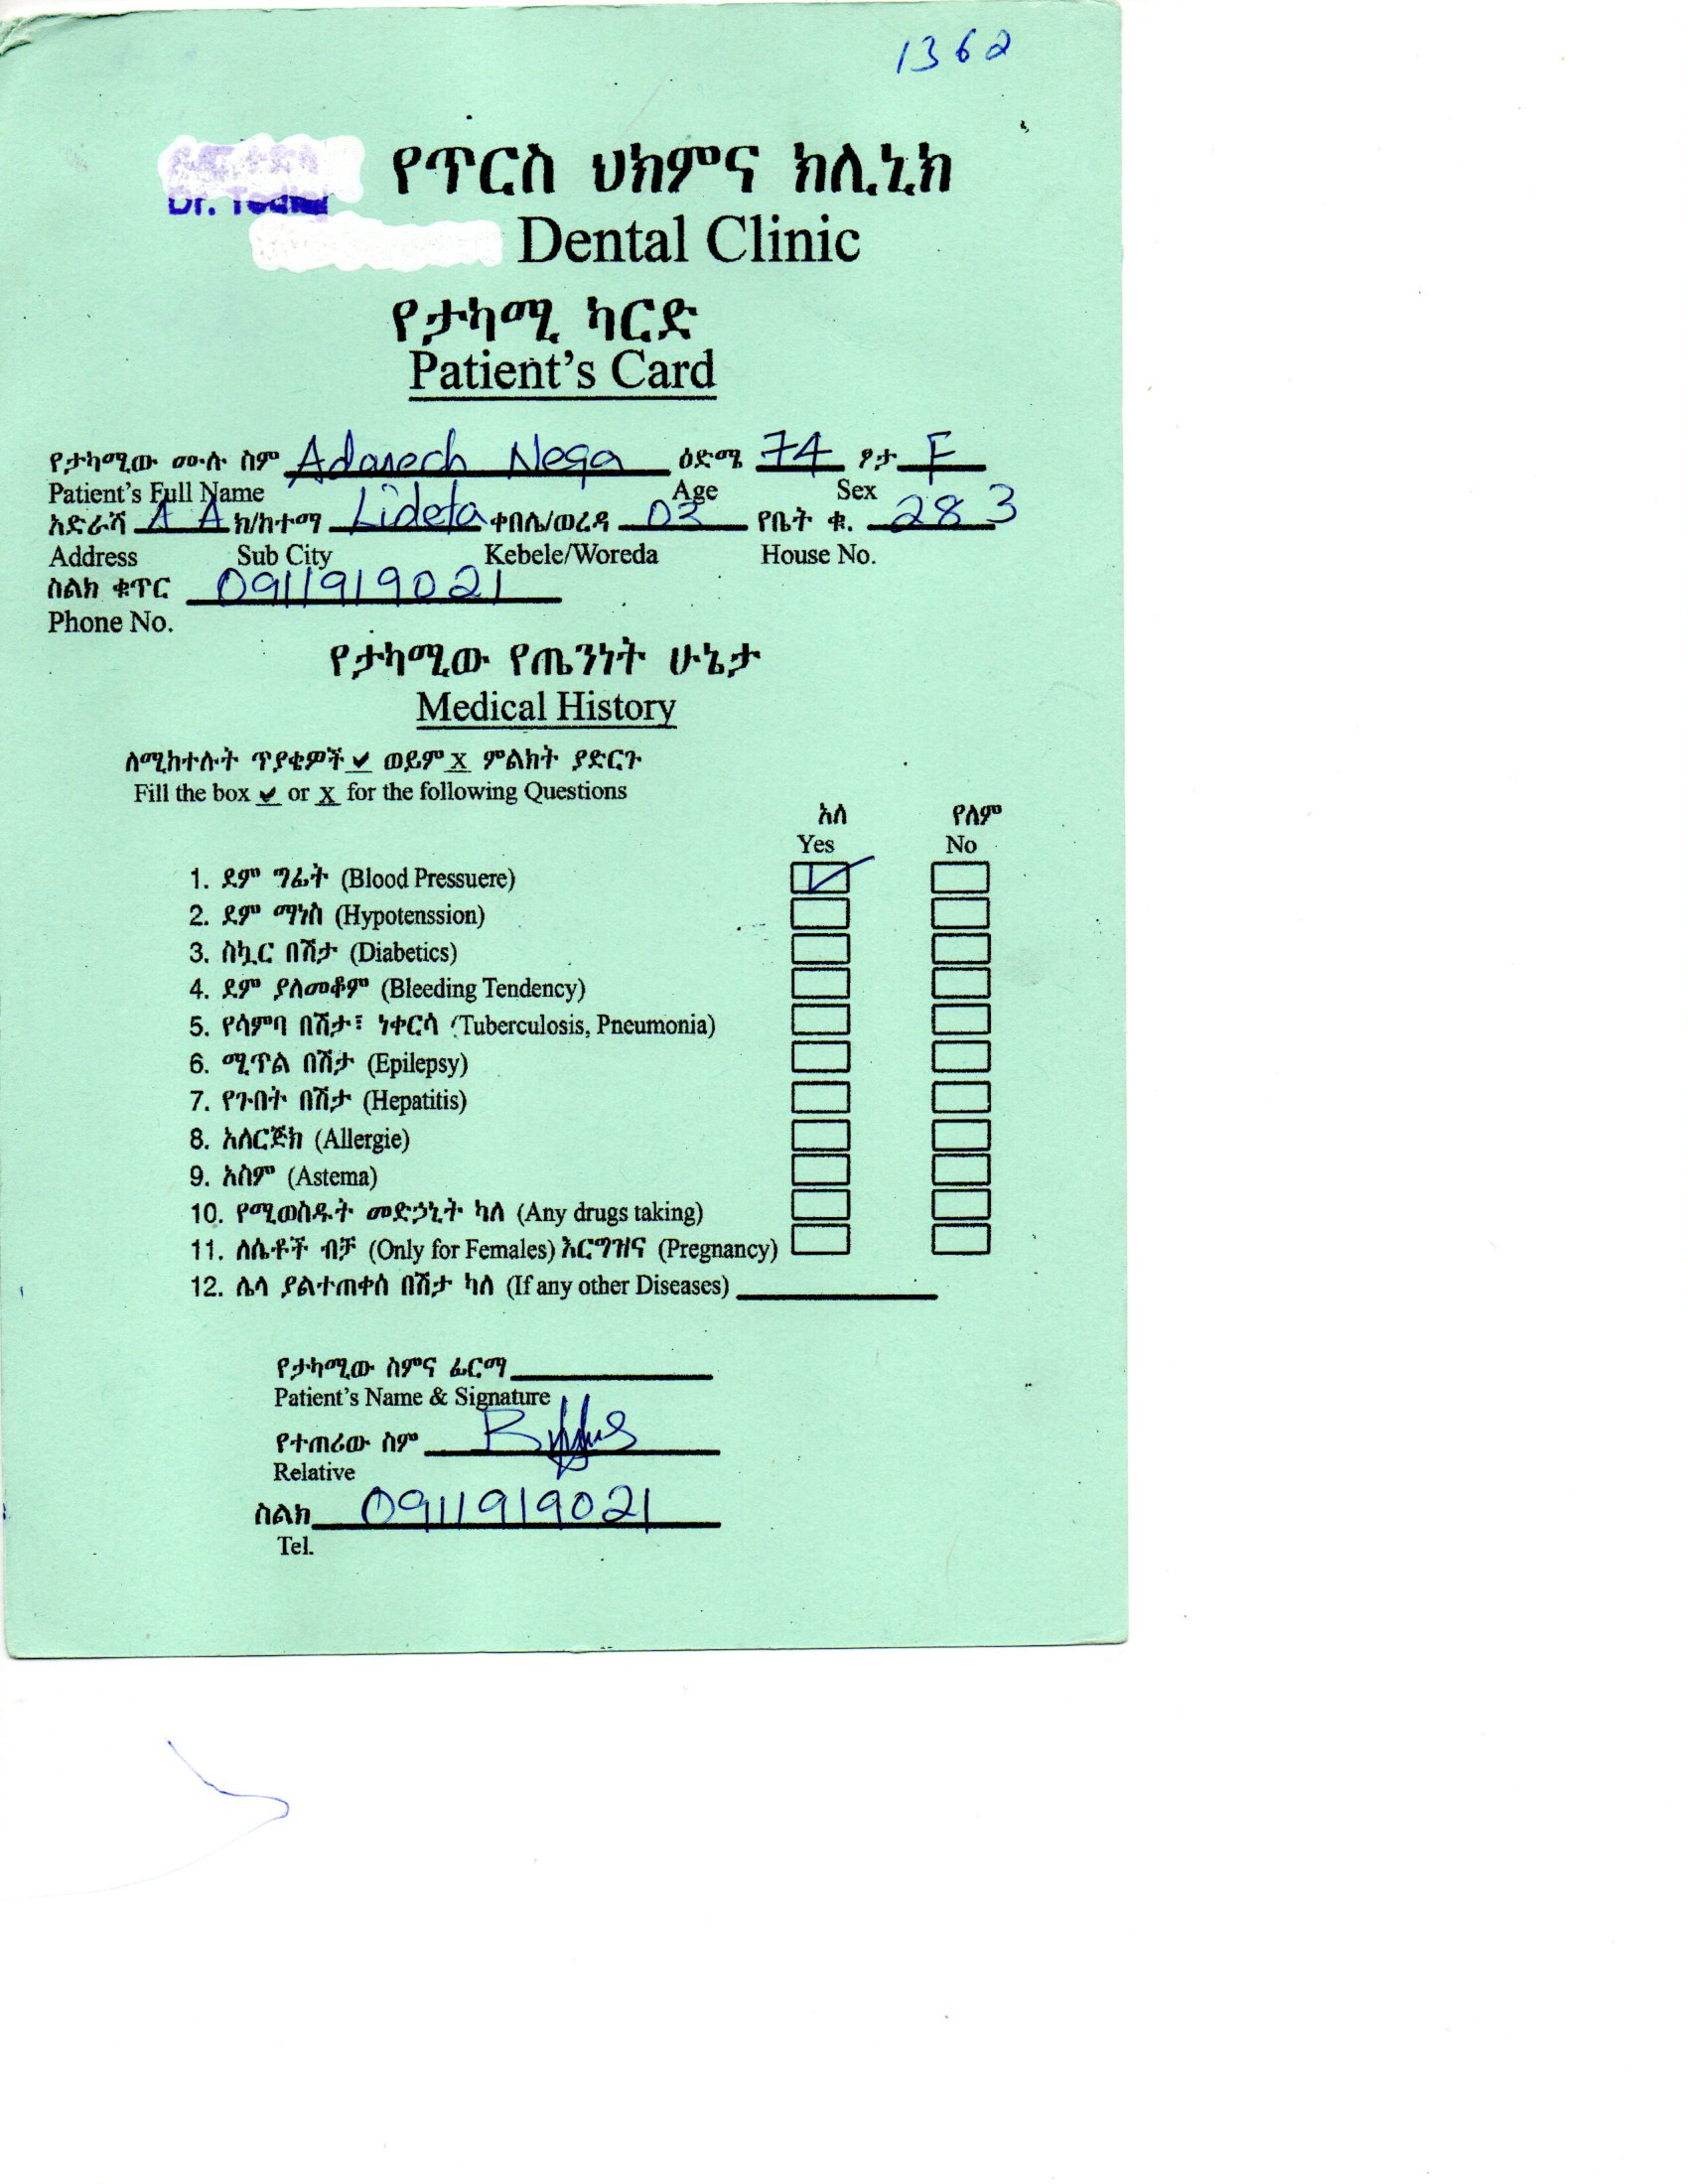 1362
የጥርስ ህክምና ክሊኒክ
Dr.
Dental Clinic
የታካሚ ካርድ
Patient's Card
የታካሚው ሙሉ ስም Adanech Nega ዕድሜ 74 ፆታ F
Patient's Full Name Age Sex
አድራሻ A A ክ/ከተማ Lideta ቀበሌ/ወረዳ 03 የቤት ቁ. 283
Address Sub City Kebele/Woreda House No.
ስልክ ቁጥር 0911919021
Phone No.
የታካሚው የጤንነት ሁኔታ
Medical History
ለሚከተሉት ጥያቄዎች ✔ ወይም X ምልክት ያድርጉ
Fill the box ✔ or X for the following Questions
አለ የለም
Yes No
1. ደም ግፊት (Blood Pressuere) ✓
2. ደም ማነስ (Hypotenssion)
3. ስኳር በሽታ (Diabetics)
4. ደም ያለመቆም (Bleeding Tendency)
5. የሳምባ በሽታ፣ ነቀርሳ (Tuberculosis, Pneumonia)
6. ሚጥል በሽታ (Epilepsy)
7. የጉበት በሽታ (Hepatitis)
8. አለርጅክ (Allergie)
9. አስም (Astema)
10. የሚወስዱት መድኃኒት ካለ (Any drugs taking)
11. ለሴቶች ብቻ (Only for Females) እርግዝና (Pregnancy)
12. ሌላ ያልተጠቀሰ በሽታ ካለ (If any other Diseases)
የታካሚው ስምና ፊርማ
Patient's Name & Signature
የተጠሪው ስም
Relative
ስልክ 0911919021
Tel.